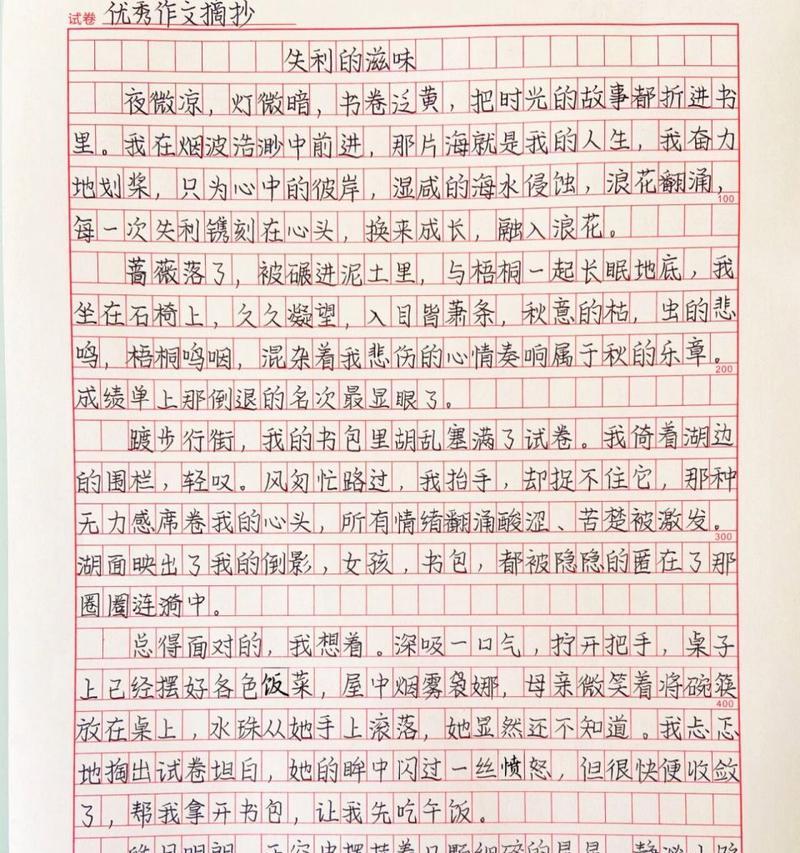 试卷 优秀作文摘抄
失利的滋味
夜微凉，灯微暗，书卷泛黄，把时光的故事都折进书
里。我在烟波浩渺中前进，那片海就是我的人生，我奋力
地划桨，只为心中的彼岸，湿咸的海水侵蚀，浪花翻涌，
100
每一次失利镌刻在心头，换来成长，融入浪花。
蔷薇落了，被碾进泥土里，与梧桐一起长眠地底，我
坐在石椅上，久久凝望，入目皆萧条，秋意的枯，虫的悲
鸣，梧桐呜咽，混杂着我悲伤的心情奏响属于秋的乐章。
200
成绩单上那倒退的名次最显眼了。
踱步行街，我的书包里胡乱塞满了试卷。我倚着湖边
的围栏，轻叹。风匆忙路过，我抬手，却捉不住它，那种
无力感席卷我的心头，所有情绪翻涌酸涩、苦楚被激发。
300
湖面映出了我的倒影，女孩，书包，都被隐隐的匿在了那
圈圈涟漪中。
总得面对的，我想着。深吸一口气，拧开把手，桌子
上已经摆好各色饭菜，屋中烟雾袅娜，母亲微笑着将碗筷
400
放在桌上，水珠从她手上滚落，她显然还不知道。我忐忑
地掏出试卷坦白，她的眸中闪过一丝愤怒，但很快便收敛
了，帮我拿开书包，让我先吃午饭。